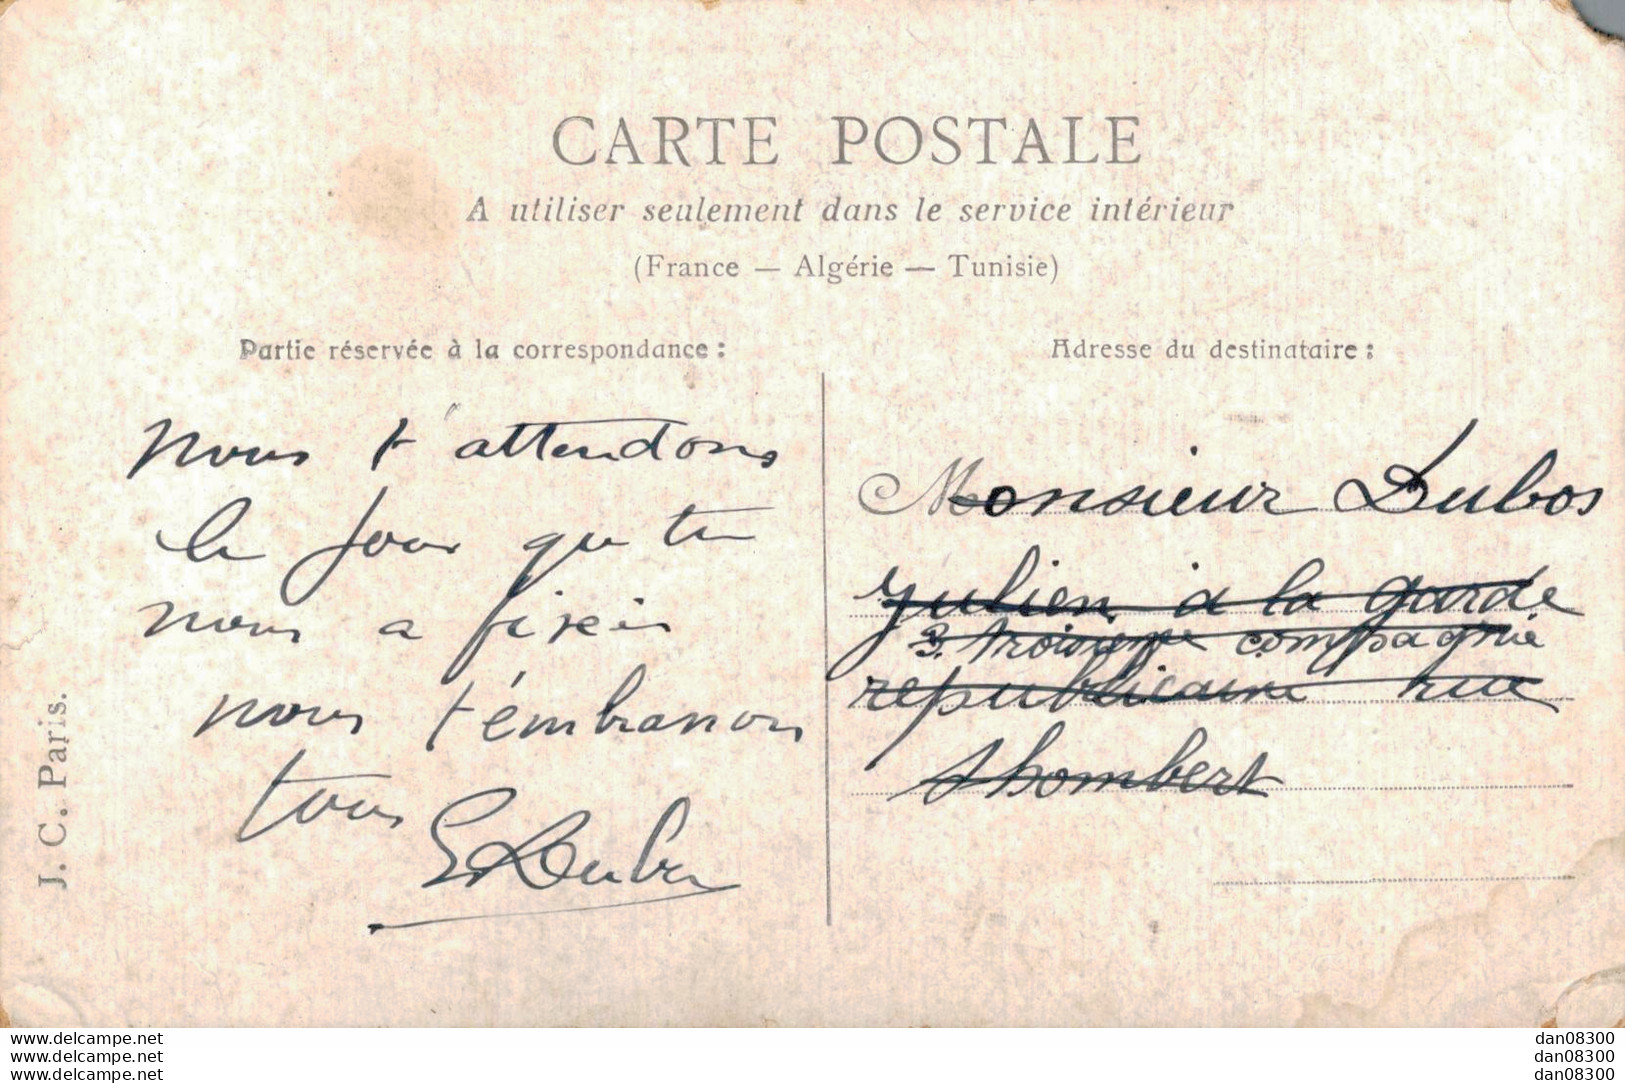 CARTE POSTALE
A utiliser seulement dans le service intérieur
(France — Algérie — Tunisie)
Partie réservée à la correspondance :
nous t'attendons
le jour que tu
nous a fixés
nous t'embrassons
tous
Adresse du destinataire :
Monsieur Dubos
Julien à la garde
3. troisieme compagnie
republicaine rue
shombert
J. C. Paris.
www.delcampe.net
www.delcampe.net
www.delcampe.net
dan08300
dan08300
dan08300